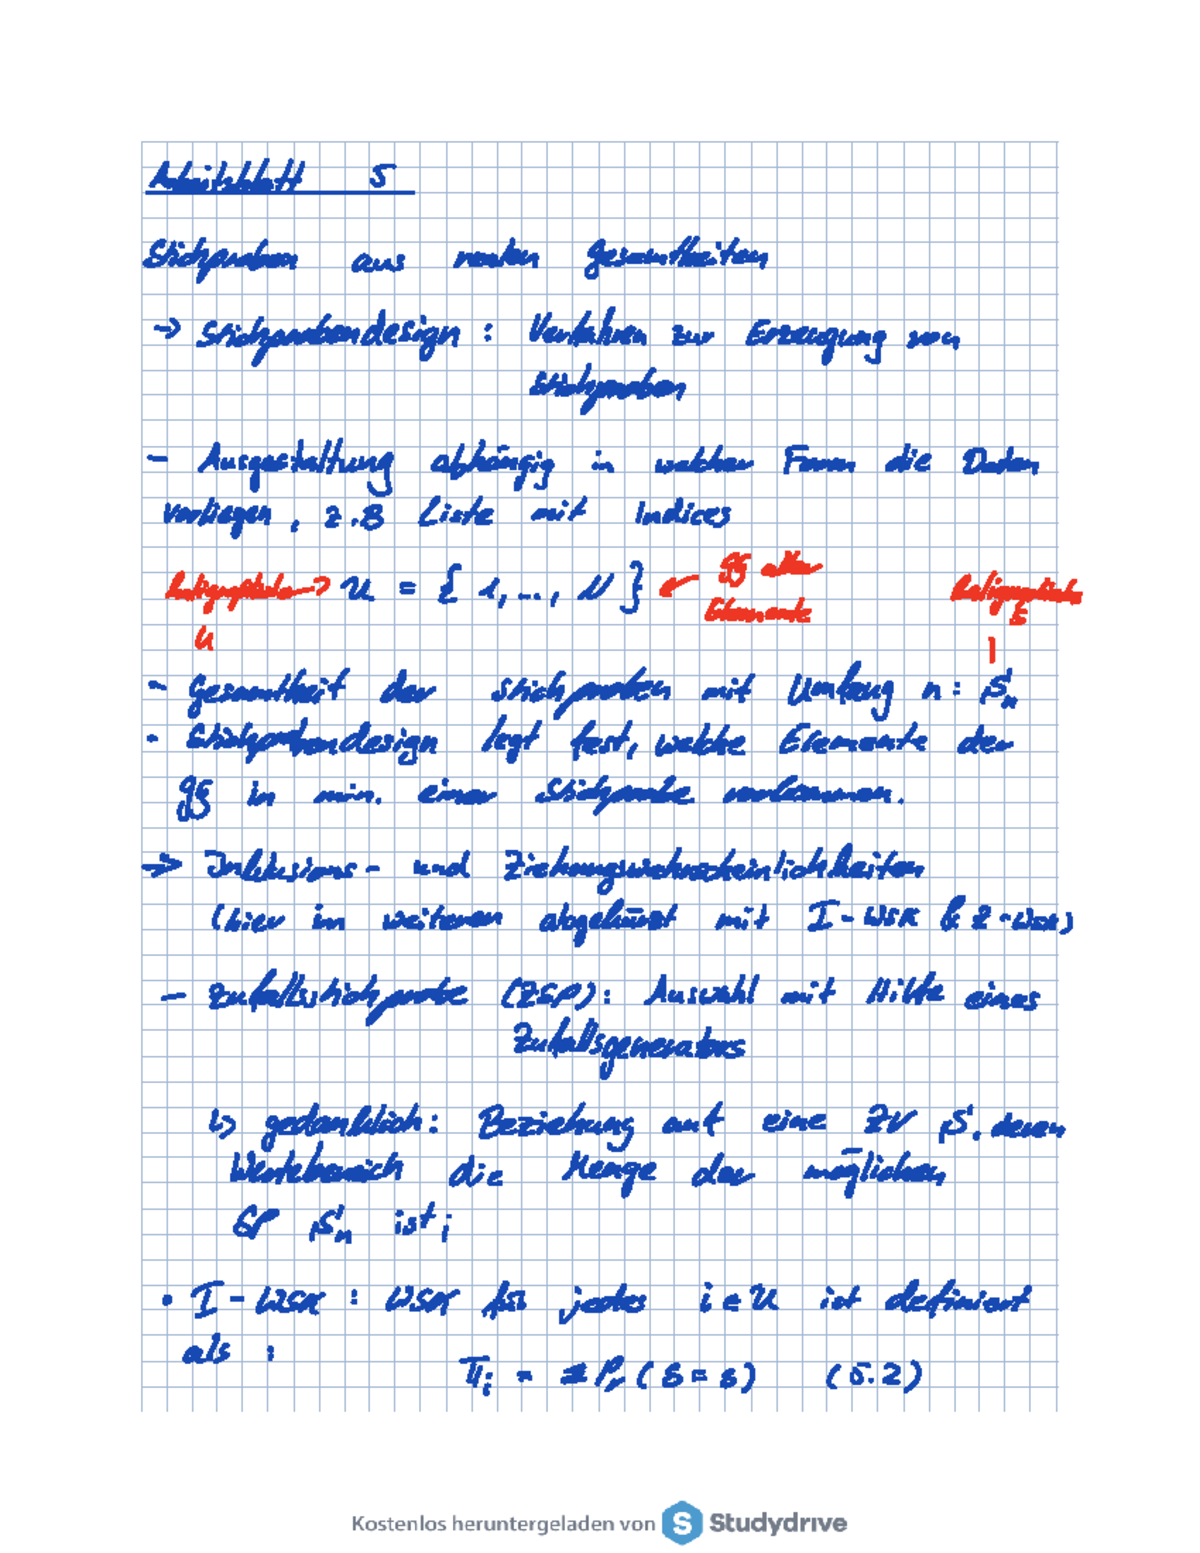 Arbeitsblatt 5
Stichproben aus realen Gesamtheiten
-> Stichprobendesign : Verfahren zur Erzeugung von
Stichproben
- Ausgestaltung abhängig in welcher Form die Daten
vorliegen, z.B Liste mit Indices
gg aller
-> U = { 1, ..., N } <- Elemente
U
- Gesamtheit der Stichproben mit Umfang n: S_n
- Stichprobendesign legt fest, welche Elemente der
gg in min. einer Stichprobe vorkommen.
-> Inklusions- und Ziehungswahrscheinlichkeiten
(hier im weiteren abgekürzt mit I-WSK & Z-WSK)
- Zufallsstichprobe (ZSP): Auswahl mit Hilfe eines
Zufallsgenerators
↳ gedanklich: Beziehung auf eine ZV S, deren
Wertebereich die Menge der möglichen
SP S_n ist;
• I-WSK : WSK für jedes i ∈ U ist definiert
als :
π_i = Σ Pr (S = s) (5.2)
Kostenlos heruntergeladen von Studydrive